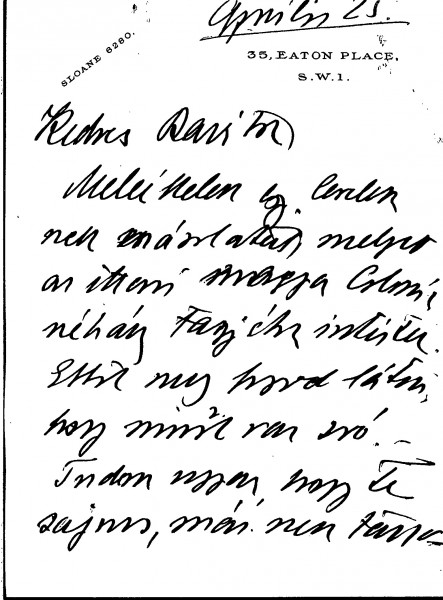 Április 23.
SLOANE 6280.
35, EATON PLACE,
S.W.1.
Kedves Barátom
Mellékelem egy levelem
nek másolatát, melyet
az itteni magyar Coloni
néhány tagjához intéztem.
Ebből meg fogod látni,
hogy miről van szó.
Tudom ugyan, hogy Te
sajnos, már nem